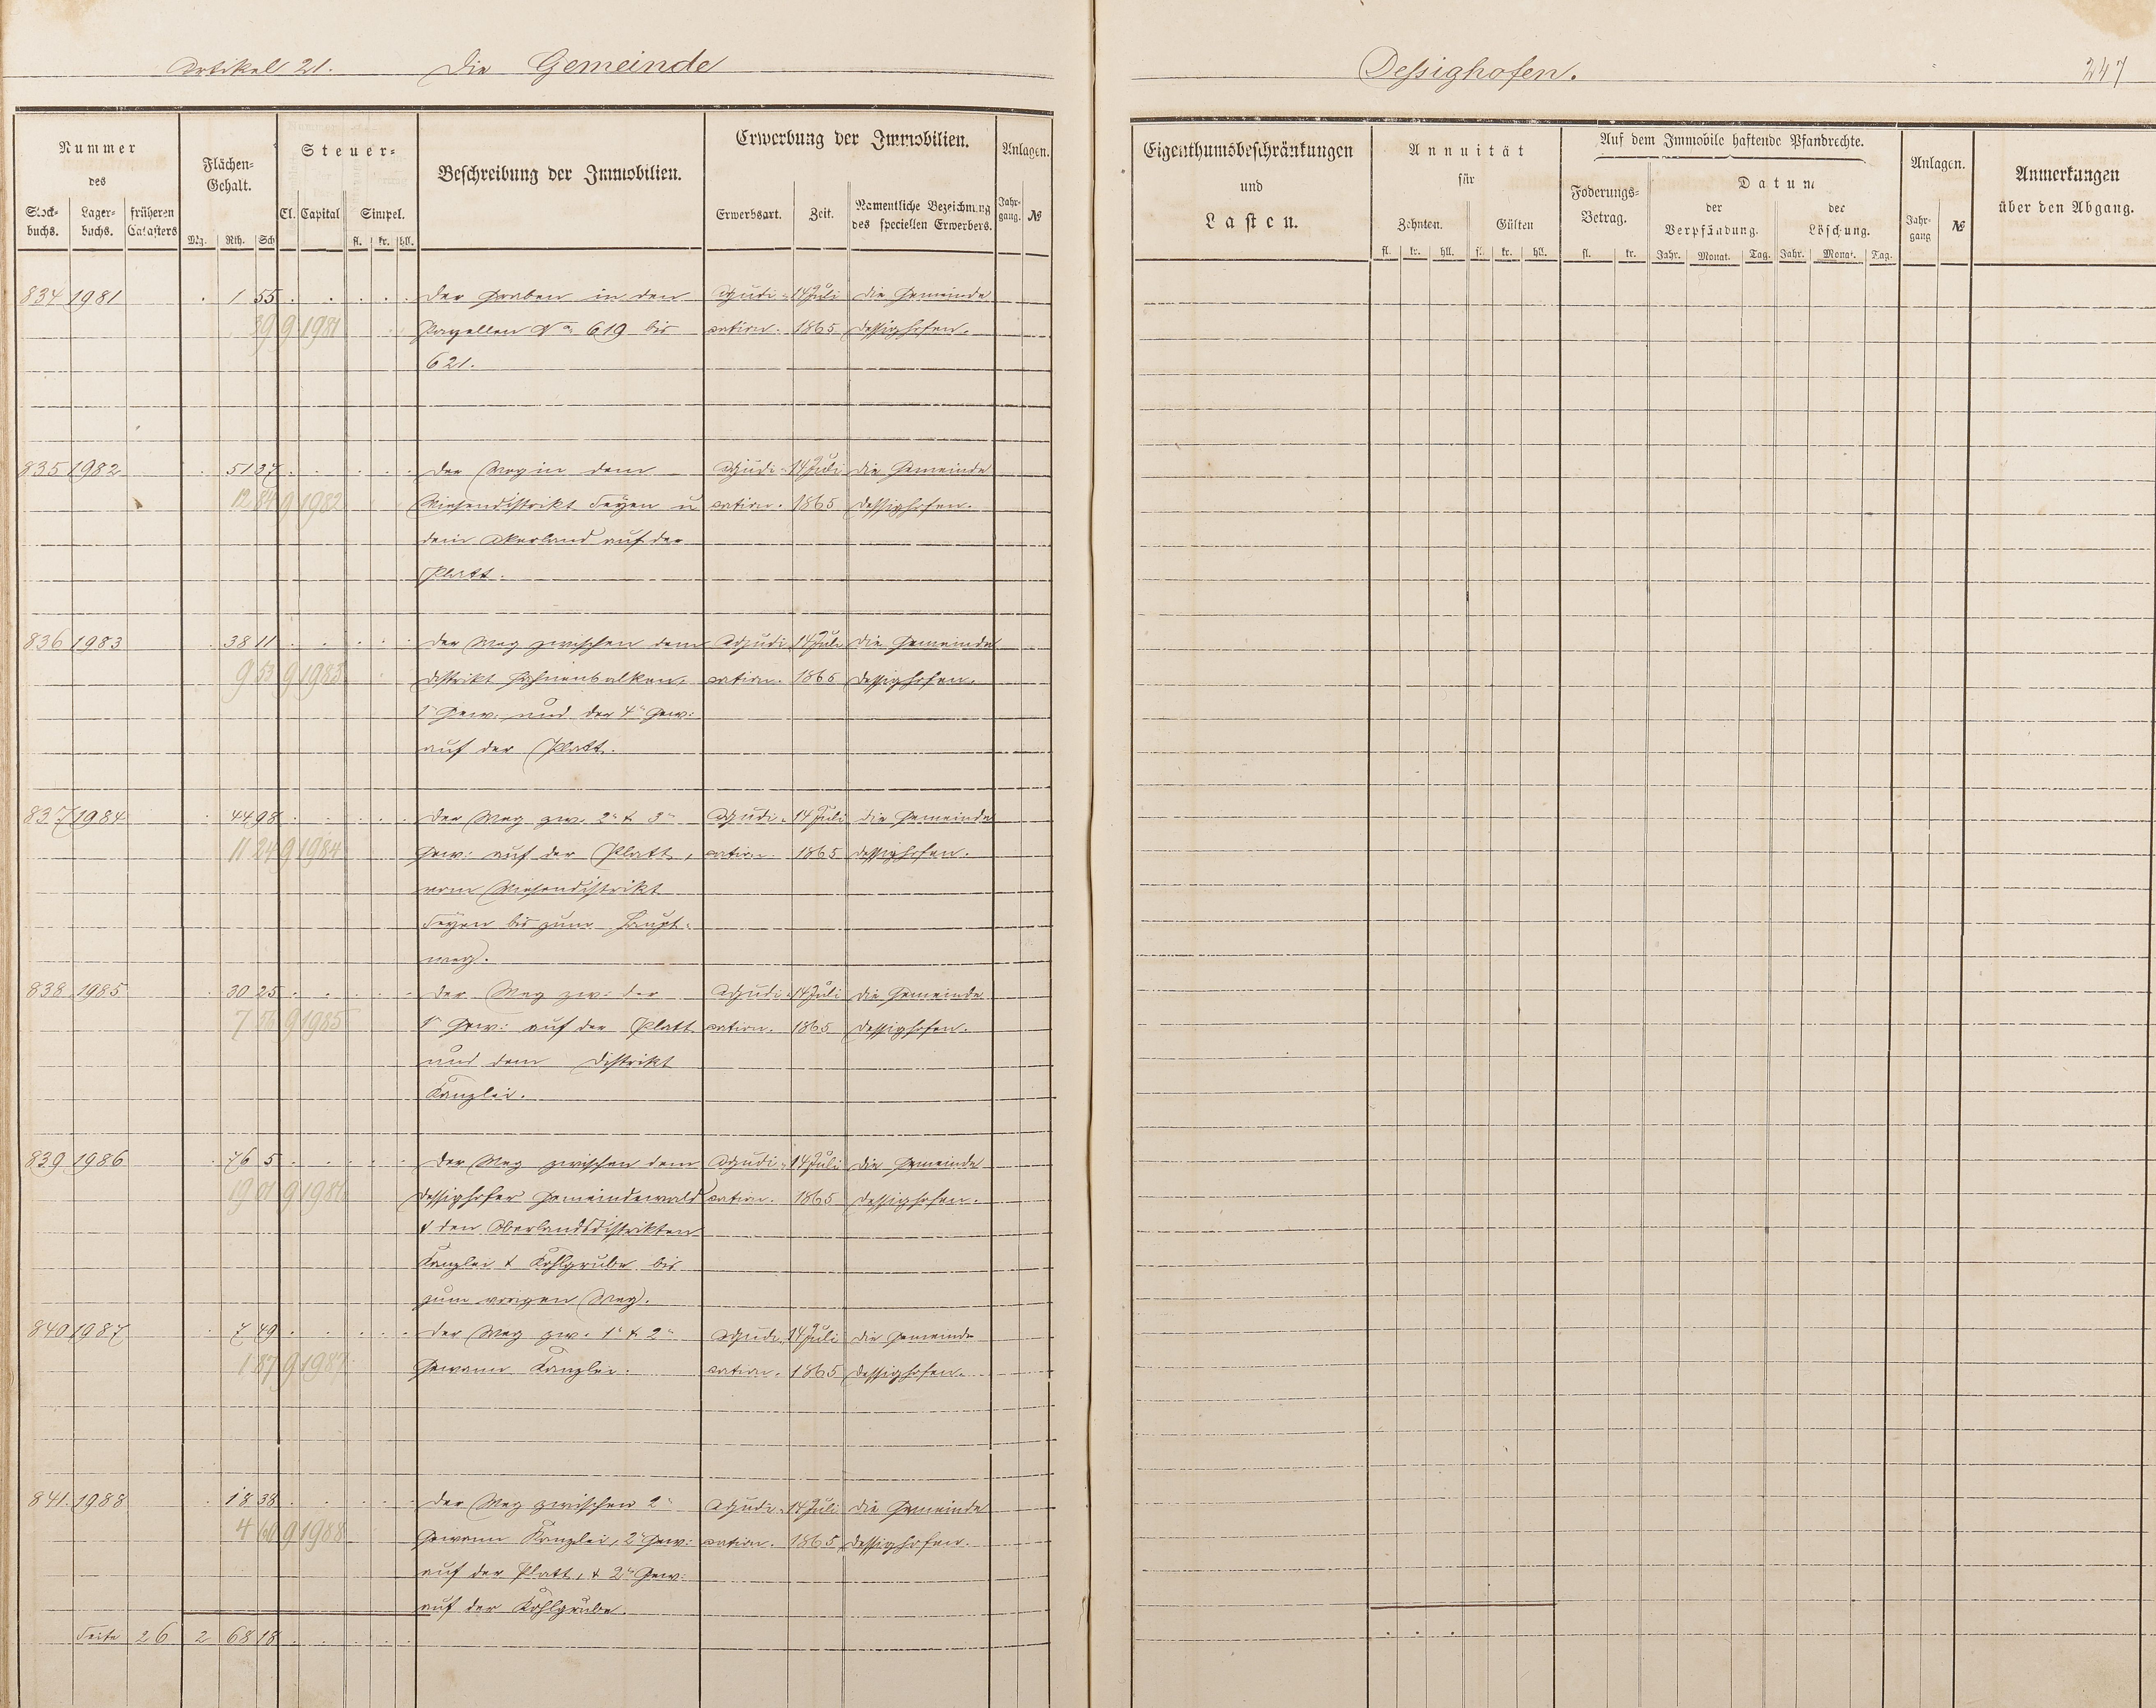 Artikel 21. Die Gemeinde
Dessighofen. 247
Nummer des
Stockbuchs. Lagerbuchs. früheren Catasters
Flächen-Gehalt.
Mg. Rth. Sch
Steuer-
Cl. Capital Simpel.
fl. kr. hll.
Beschreibung der Immobilien.
Erwerbung der Immobilien.
Erwerbsart. Zeit. Namentliche Bezeichnung des speciellen Erwerbers.
Anlagen.
Jahrgang. №
Eigenthumsbeschränkungen und Lasten.
Annuität für
Zehnten. Gülten
fl. kr. hll. fl. kr. hll.
Auf dem Immobile haftende Pfandrechte.
Foderungs-Betrag.
fl. kr.
Datum
der Verpfändung. der Löschung.
Jahr. Monat. Tag. Jahr. Monat. Tag.
Anlagen.
Jahrgang №
Anmerkungen über den Abgang.
834 1981 1 55 Der Graben in den Adjudi- 14 Juli die Gemeinde
39 9 1981 Parzellen No 619 bis cation. 1865 Dessighofen.
621.
835 1982 51 37 Der Weg in dem Adjudi- 14 Juli die Gemeinde
12 84 9 1982 Wiesendistrikt Feyen u cation. 1865 Dessighofen.
dem Akerland auf der
Platt.
836 1983 38 11 Der Weg zwischen dem Adjudi- 14 Juli die Gemeinde
9 53 9 1983 Distrikt cation. 1865 Dessighofen.
1r Gew: und der 4n Gew:
auf der Platt.
837 1984 44 98 Der Weg zw. 2r & 3r Adjudi- 14 Juli die Gemeinde
11 24 9 1984 Gew: auf der Platt, cation. 1865 Dessighofen.
vom Wiesendistrikt
Feyen bis zum Haupt-
weg.
838 1985 30 25 Der Weg zw: der Adjudi- 14 Juli die Gemeinde
7 56 9 1985 1n Gew: auf der Platt cation. 1865 Dessighofen.
und dem Distrikt
Kanzlei.
839 1986 76 5 Der Weg zwischen dem Adjudi- 14 Juli die Gemeinde
19 01 9 1986 Dessighofer Gemeindewald cation. 1865 Dessighofen.
& den Distrikten
Kanzlei & Kohlgrube bis
zum vorigen Weg.
840 1987 7 49 Der Weg zw. 1r & 2r Adjudi- 14 Juli die Gemeinde
1 87 9 1987 Gewann Kanzlei. cation. 1865 Dessighofen.
841. 1988 18 38 Der Weg zwischen 2r Adjudi- 14 Juli die Gemeinde
4 60 9 1988 Gewann Kanzlei, 2r Gew: cation. 1865 Dessighofen.
auf der Platt, & 2r Gew:
auf der Kohlgrube.
Seite 26 2 68 18